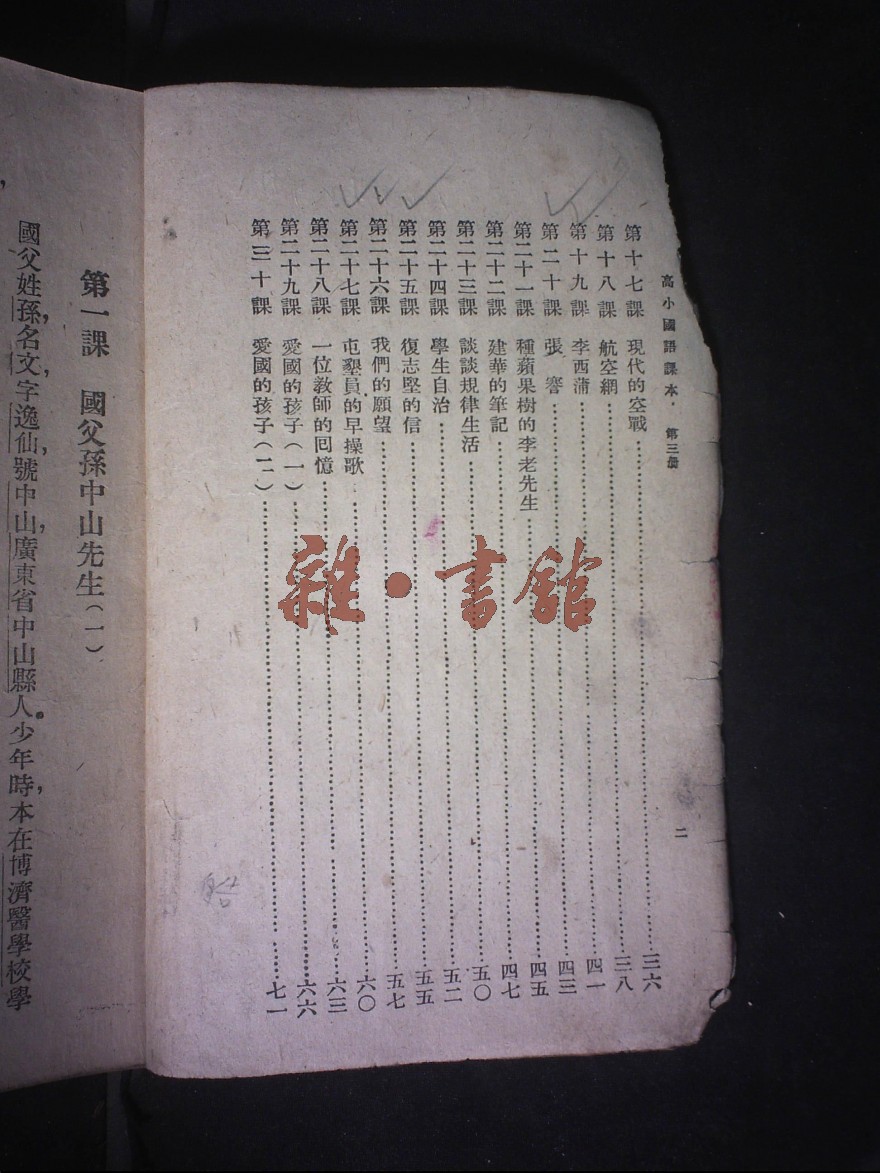 高小國語課本·第三册
二
第十七課 現代的空戰……三六
第十八課 航空網……三八
第十九課 李西蒲……四一
第二十課 張謇……四三
第二十一課 種蘋果樹的李老先生……四五
第二十二課 建華的筆記……四七
第二十三課 談談規律生活……五〇
第二十四課 學生自治……五二
第二十五課 復志堅的信……五五
第二十六課 我們的願望……五七
第二十七課 屯墾員的早操歌……六〇
第二十八課 一位教師的囘憶……六三
第二十九課 愛國的孩子(一)……六六
第三十課 愛國的孩子(二)……七一
第一課 國父孫中山先生(一)
國父姓孫,名文,字逸仙,號中山,廣東省中山縣人。少年時,本在博濟醫學校學
雜·書館